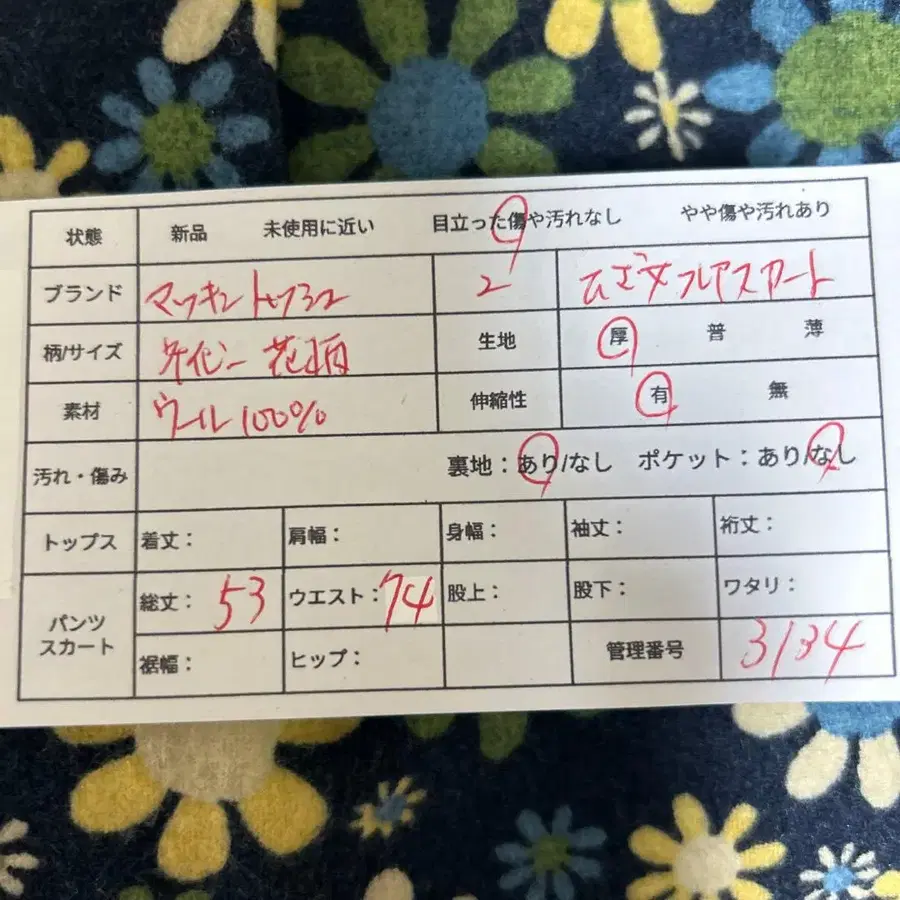 状態 新品 未使用に近い 目立った傷や汚れなし やや傷や汚れあり
ブランド マッキントッシュ 2 ひざ丈フレアスカート
柄/サイズ ネイビー 花柄 生地 厚 普 薄
素材 ウール100% 伸縮性 有 無
汚れ・傷み 裏地：あり/なし ポケット：あり/なし
トップス 着丈： 肩幅： 身幅： 袖丈： 裄丈：
パンツ スカート 総丈： 53 ウエスト： 74 股上： 股下： ワタリ：
裾幅： ヒップ： 管理番号 3134